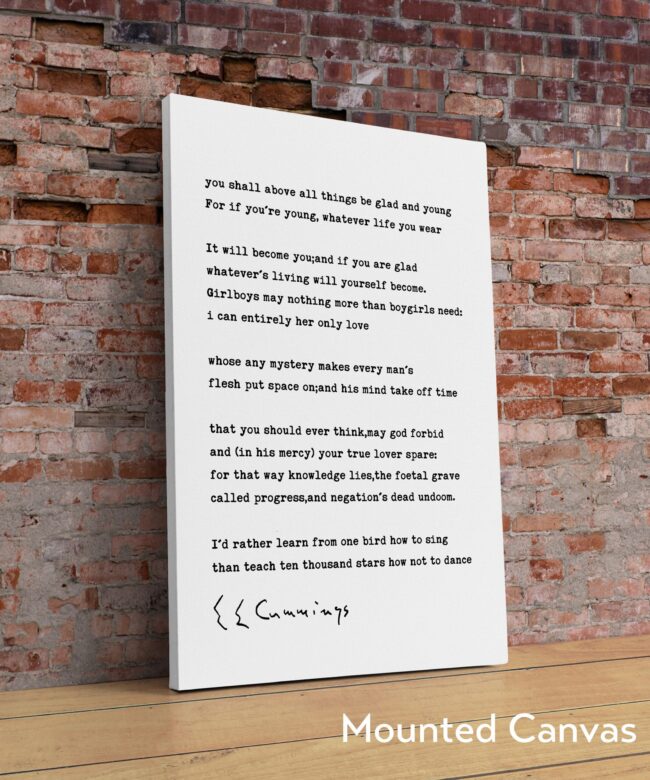 you shall above all things be glad and young
For if you're young, whatever life you wear
It will become you;and if you are glad
whatever's living will yourself become.
Girlboys may nothing more than boygirls need:
i can entirely her only love
whose any mystery makes every man's
flesh put space on;and his mind take off time
that you should ever think,may god forbid
and (in his mercy) your true lover spare:
for that way knowledge lies,the foetal grave
called progress,and negation's dead undoom.
I'd rather learn from one bird how to sing
than teach ten thousand stars how not to dance
E E Cummings
Mounted Canvas